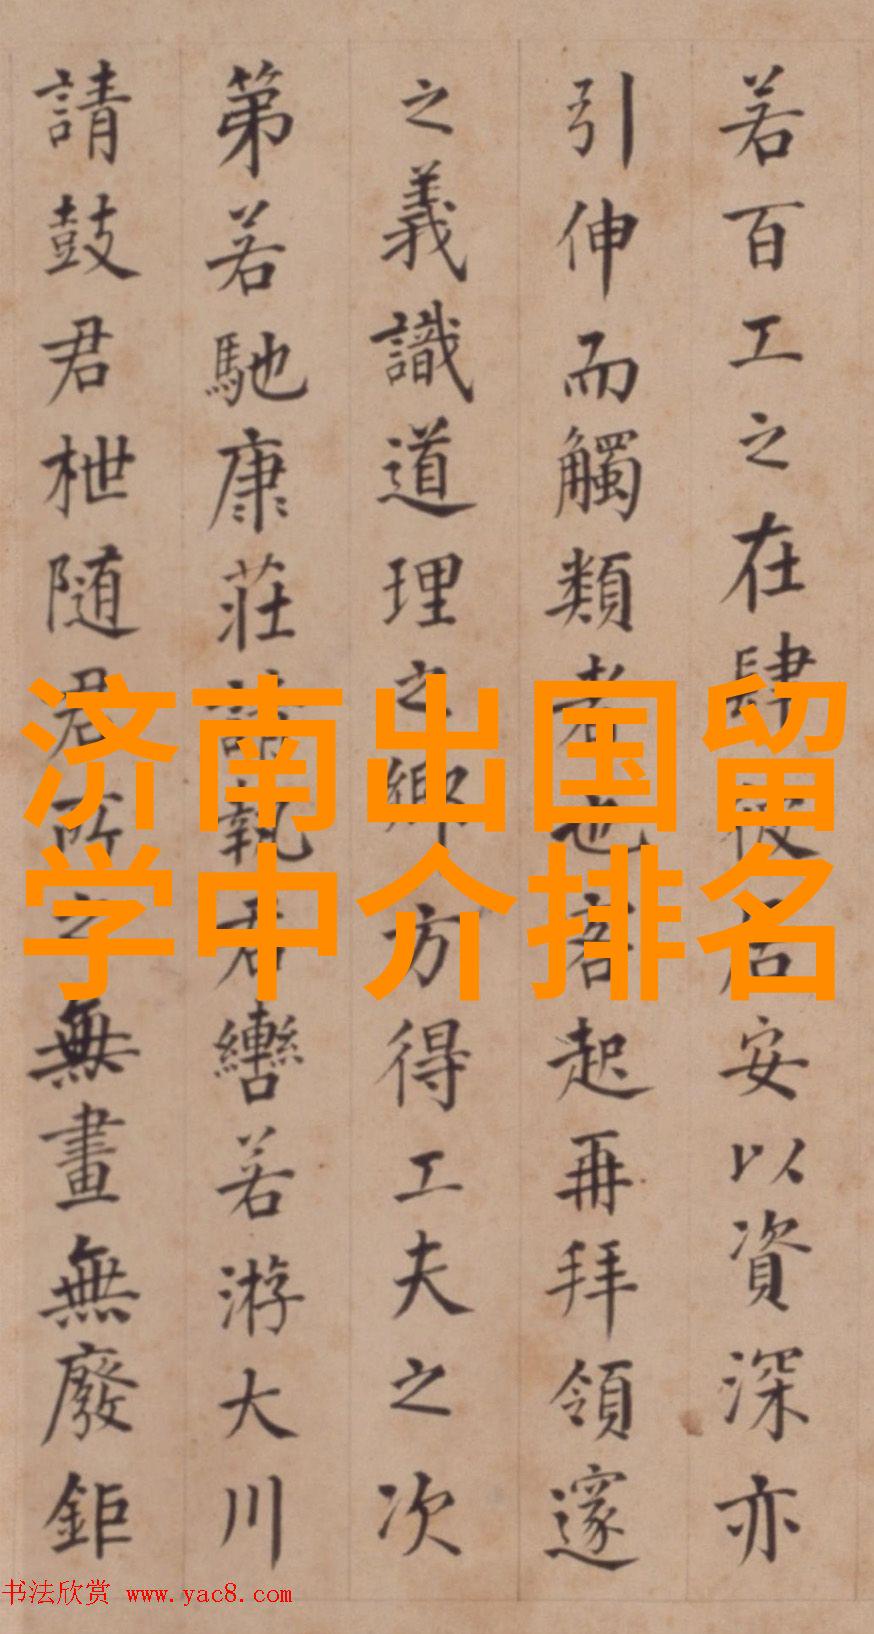 若百工之在肆彼居安以資深亦
引伸而觸類者也客起再拜領邃
之義識道理之鄉方得工夫之次
第若馳康莊請執君轡若游大川
請鼓君枻隨君所之無畫無廢鉅
济南出国留
学中介排名
书法欣赏 www.yac8.com